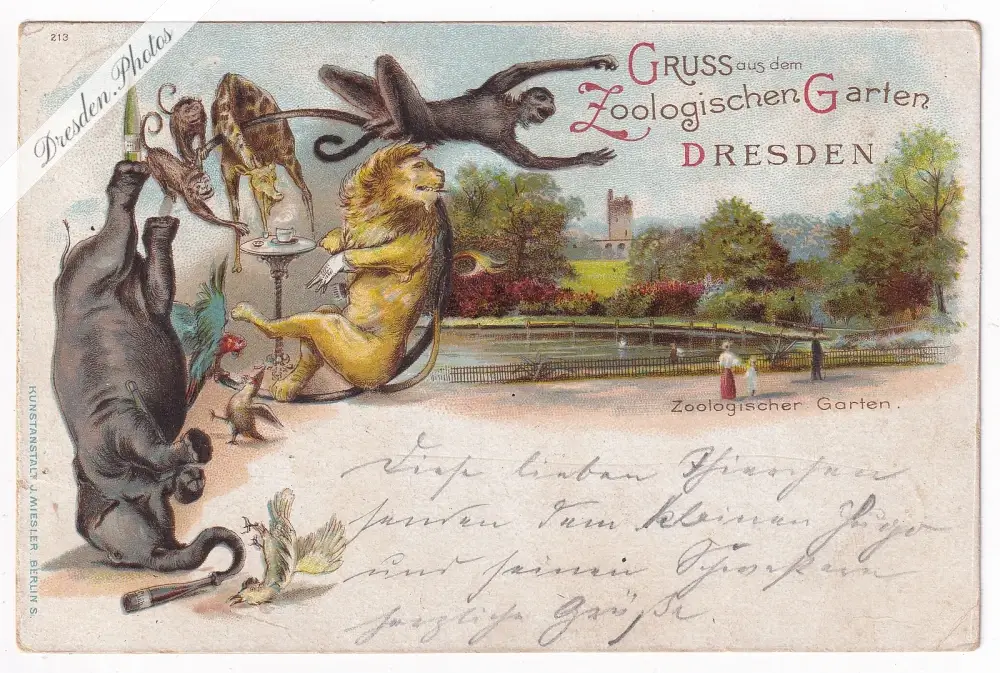 213
Dresden.Photos
GRUSS aus dem
Zoologischen Garten
DRESDEN.
Zoologischer Garten.
KUNSTANSTALT J. MIESLER BERLIN S.
Diese lieben Thierchen
senden dem kleinen Hugo
und seinen Schwestern
herzliche Grüße.